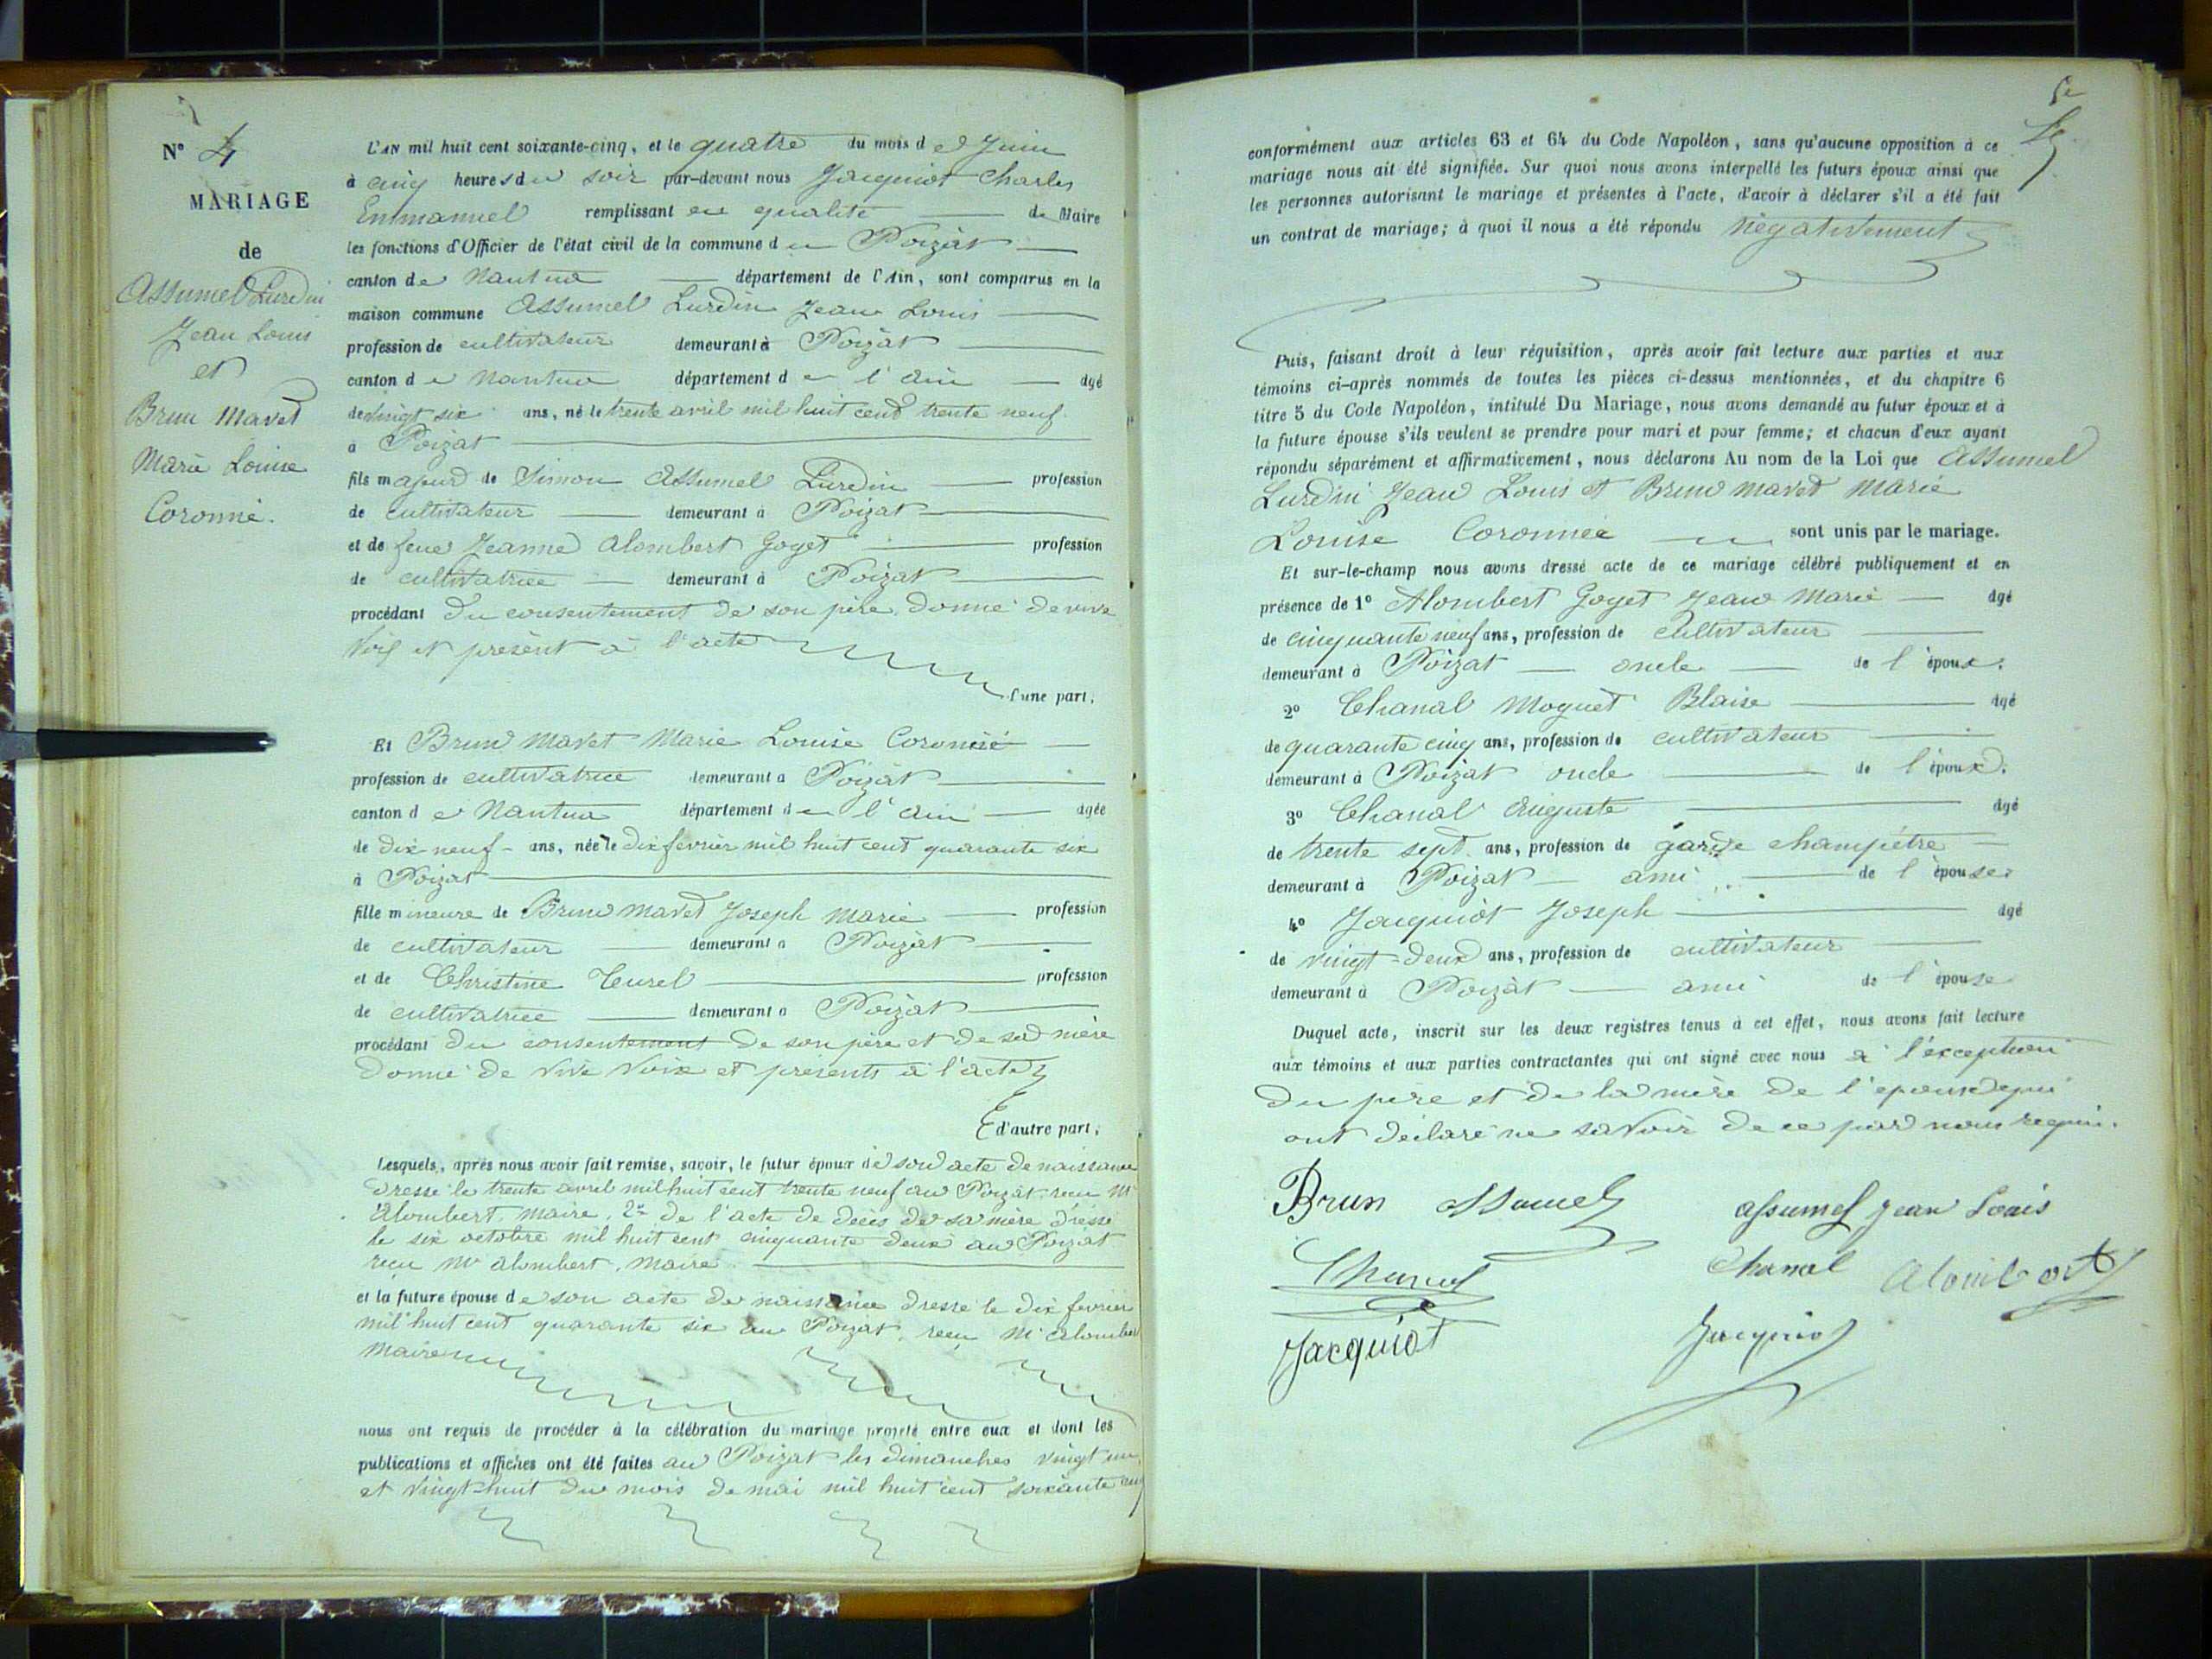 N° 4
MARIAGE
de
Assumel Lurdin
Jean Louis
et
Brun Mavet
Marie Louise
Coronné.
L'AN mil huit cent soixante-cinq, et le quatre du mois de Juin
à cinq heures du soir par-devant nous Jacquiot Charles
Emmanuel remplissant en qualité de Maire
les fonctions d'Officier de l'état civil de la commune du Poizat
canton de Nantua département de l'Ain, sont comparus en la
maison commune Assumel Lurdin Jean Louis
profession de cultivateur demeurant à Poizat
canton de Nantua département de l'ain âgé
de vingt six ans, né le trente avril mil huit cent trente neuf
à Poizat
fils majeur de Simon Assumel Lurdin profession
de cultivateur demeurant à Poizat
et de feue Jeanne Alombert Goget profession
de cultivatrice demeurant à Poizat
procédant du consentement de son père, donné de vive
voix et présent à l'acte
d'une part,
Et Brun Mavet Marie Louise Coronné
profession de cultivatrice demeurant à Poizat
canton de Nantua département de l'ain âgée
de dix neuf ans, née le dix fevrier mil huit cent quarante six
à Poizat
fille mineure de Brun mavet Joseph Marie profession
de cultivateur demeurant à Poizat
et de Christine Turel profession
de cultivatrice demeurant à Poizat
procédant du consentement de son père et de sa mère
donné de vive voix et présents à l'acte
d'autre part,
Lesquels, après nous avoir fait remise, savoir, le futur époux de son acte de naissance
dressé le trente avril mil huit cent trente neuf au Poizat reçu Mr
Alombert, maire, 2° de l'acte de décès de sa mère dressé
le six octobre mil huit cent cinquante deux au Poizat
reçu Mr alombert, Maire
et la future épouse de son acte de naissance dressé le dix fevrier
mil huit cent quarante six au Poizat, reçu Mr Alombert
Maire
nous ont requis de procéder à la célébration du mariage projeté entre eux et dont les
publications et affiches ont été faites au Poizat les dimanches vingt un
et vingt-huit du mois de mai mil huit cent soixante cinq
conformément aux articles 63 et 64 du Code Napoléon, sans qu'aucune opposition à ce
mariage nous ait été signifiée. Sur quoi nous avons interpellé les futurs époux ainsi que
les personnes autorisant le mariage et présentes à l'acte, d'avoir à déclarer s'il a été fait
un contrat de mariage; à quoi il nous a été répondu négativement
Puis, faisant droit à leur réquisition, après avoir fait lecture aux parties et aux
témoins ci-après nommés de toutes les pièces ci-dessus mentionnées, et du chapitre 6
titre 5 du Code Napoléon, intitulé Du Mariage, nous avons demandé au futur époux et à
la future épouse s'ils veulent se prendre pour mari et pour femme; et chacun d'eux ayant
répondu séparément et affirmativement, nous déclarons Au nom de la Loi que Assumel
Lurdin Jean Louis et Brun mavet Marie
Louise Coronnée sont unis par le mariage.
Et sur-le-champ nous avons dressé acte de ce mariage célébré publiquement et en
présence de 1° Alombert Goget Jean Marie âgé
de cinquante neuf ans, profession de cultivateur
demeurant à Poizat oncle de l'époux.
2° Chanal Moguet Blaise âgé
de quarante cinq ans, profession de cultivateur
demeurant à Poizat oncle de l'époux.
3° Chanal Auguste âgé
de trente sept ans, profession de garde champêtre
demeurant à Poizat ami de l'épouse
4° Jacquiot Joseph âgé
de vingt-deux ans, profession de cultivateur
demeurant à Poizat ami de l'épouse
Duquel acte, inscrit sur les deux registres tenus à cet effet, nous avons fait lecture
aux témoins et aux parties contractantes qui ont signé avec nous à l'exception
du père et de la mère de l'épouse qui
ont déclaré ne savoir de ce par nous requis.
Brun Assumel Assumel Jean Louis
Chanal Chanal Alombert
Jacquiot Jacquiot